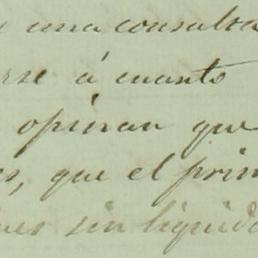 una consulta
rse á cuanto
opinan que
s, que el prim
ues sin liquid